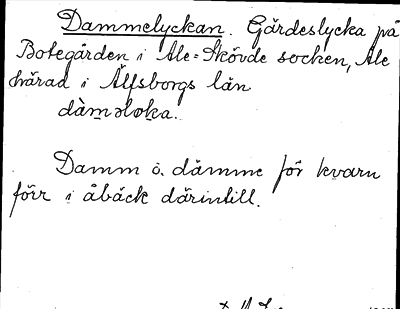 Dammelyckan. Gärdeslycka på
Botegården i Ale=Skövde socken, Ale
härad i Älfsborgs län
dàməlo̭ka.
Damm o. dämme för kvarn
förr i åbäck därintill.